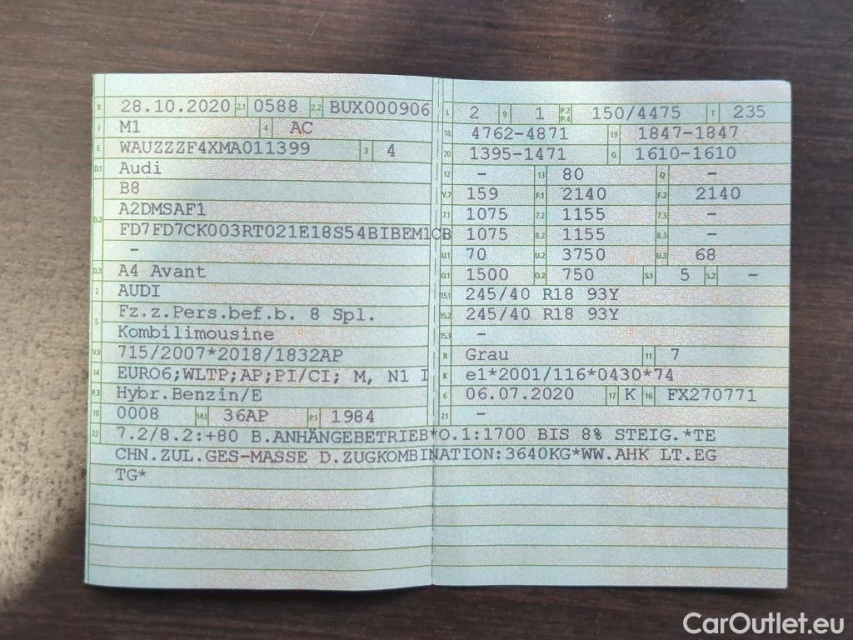 B 28.10.2020 2.1 0588 2.2 BUX000906
J M1 4 AC
E WAUZZZF4XMA011399 3 4
D.1 Audi
B8
D.2 A2DMSAF1
FD7FD7CK003RT021E18S54BIBEM1CB
-
D.3 A4 Avant
2 AUDI
5 Fz.z.Pers.bef.b. 8 Spl.
Kombilimousine
V.9 715/2007*2018/1832AP
14 EURO6;WLTP;AP;PI/CI; M, N1 I
P.3 Hybr.Benzin/E
10 0008 14.1 36AP P.1 1984
22 7.2/8.2:+80 B.ANHÄNGEBETRIEB*O.1:1700 BIS 8% STEIG.*TE
CHN.ZUL.GES-MASSE D.ZUGKOMBINATION:3640KG*WW.AHK LT.EG
TG*
L 2 9 1 P.2 P.4 150/4475 T 235
18 4762-4871 19 1847-1847
20 1395-1471 G 1610-1610
12 - 13 80 Q -
V.7 159 F.1 2140 F.2 2140
7.1 1075 7.2 1155 7.3 -
8.1 1075 8.2 1155 8.3 -
U.1 70 U.2 3750 U.3 68
O.1 1500 O.2 750 S.1 5 S.2 -
15.1 245/40 R18 93Y
15.2 245/40 R18 93Y
15.3 -
R Grau 11 7
K e1*2001/116*0430*74
6 06.07.2020 17 K 16 FX270771
21 -
CarOutlet.eu